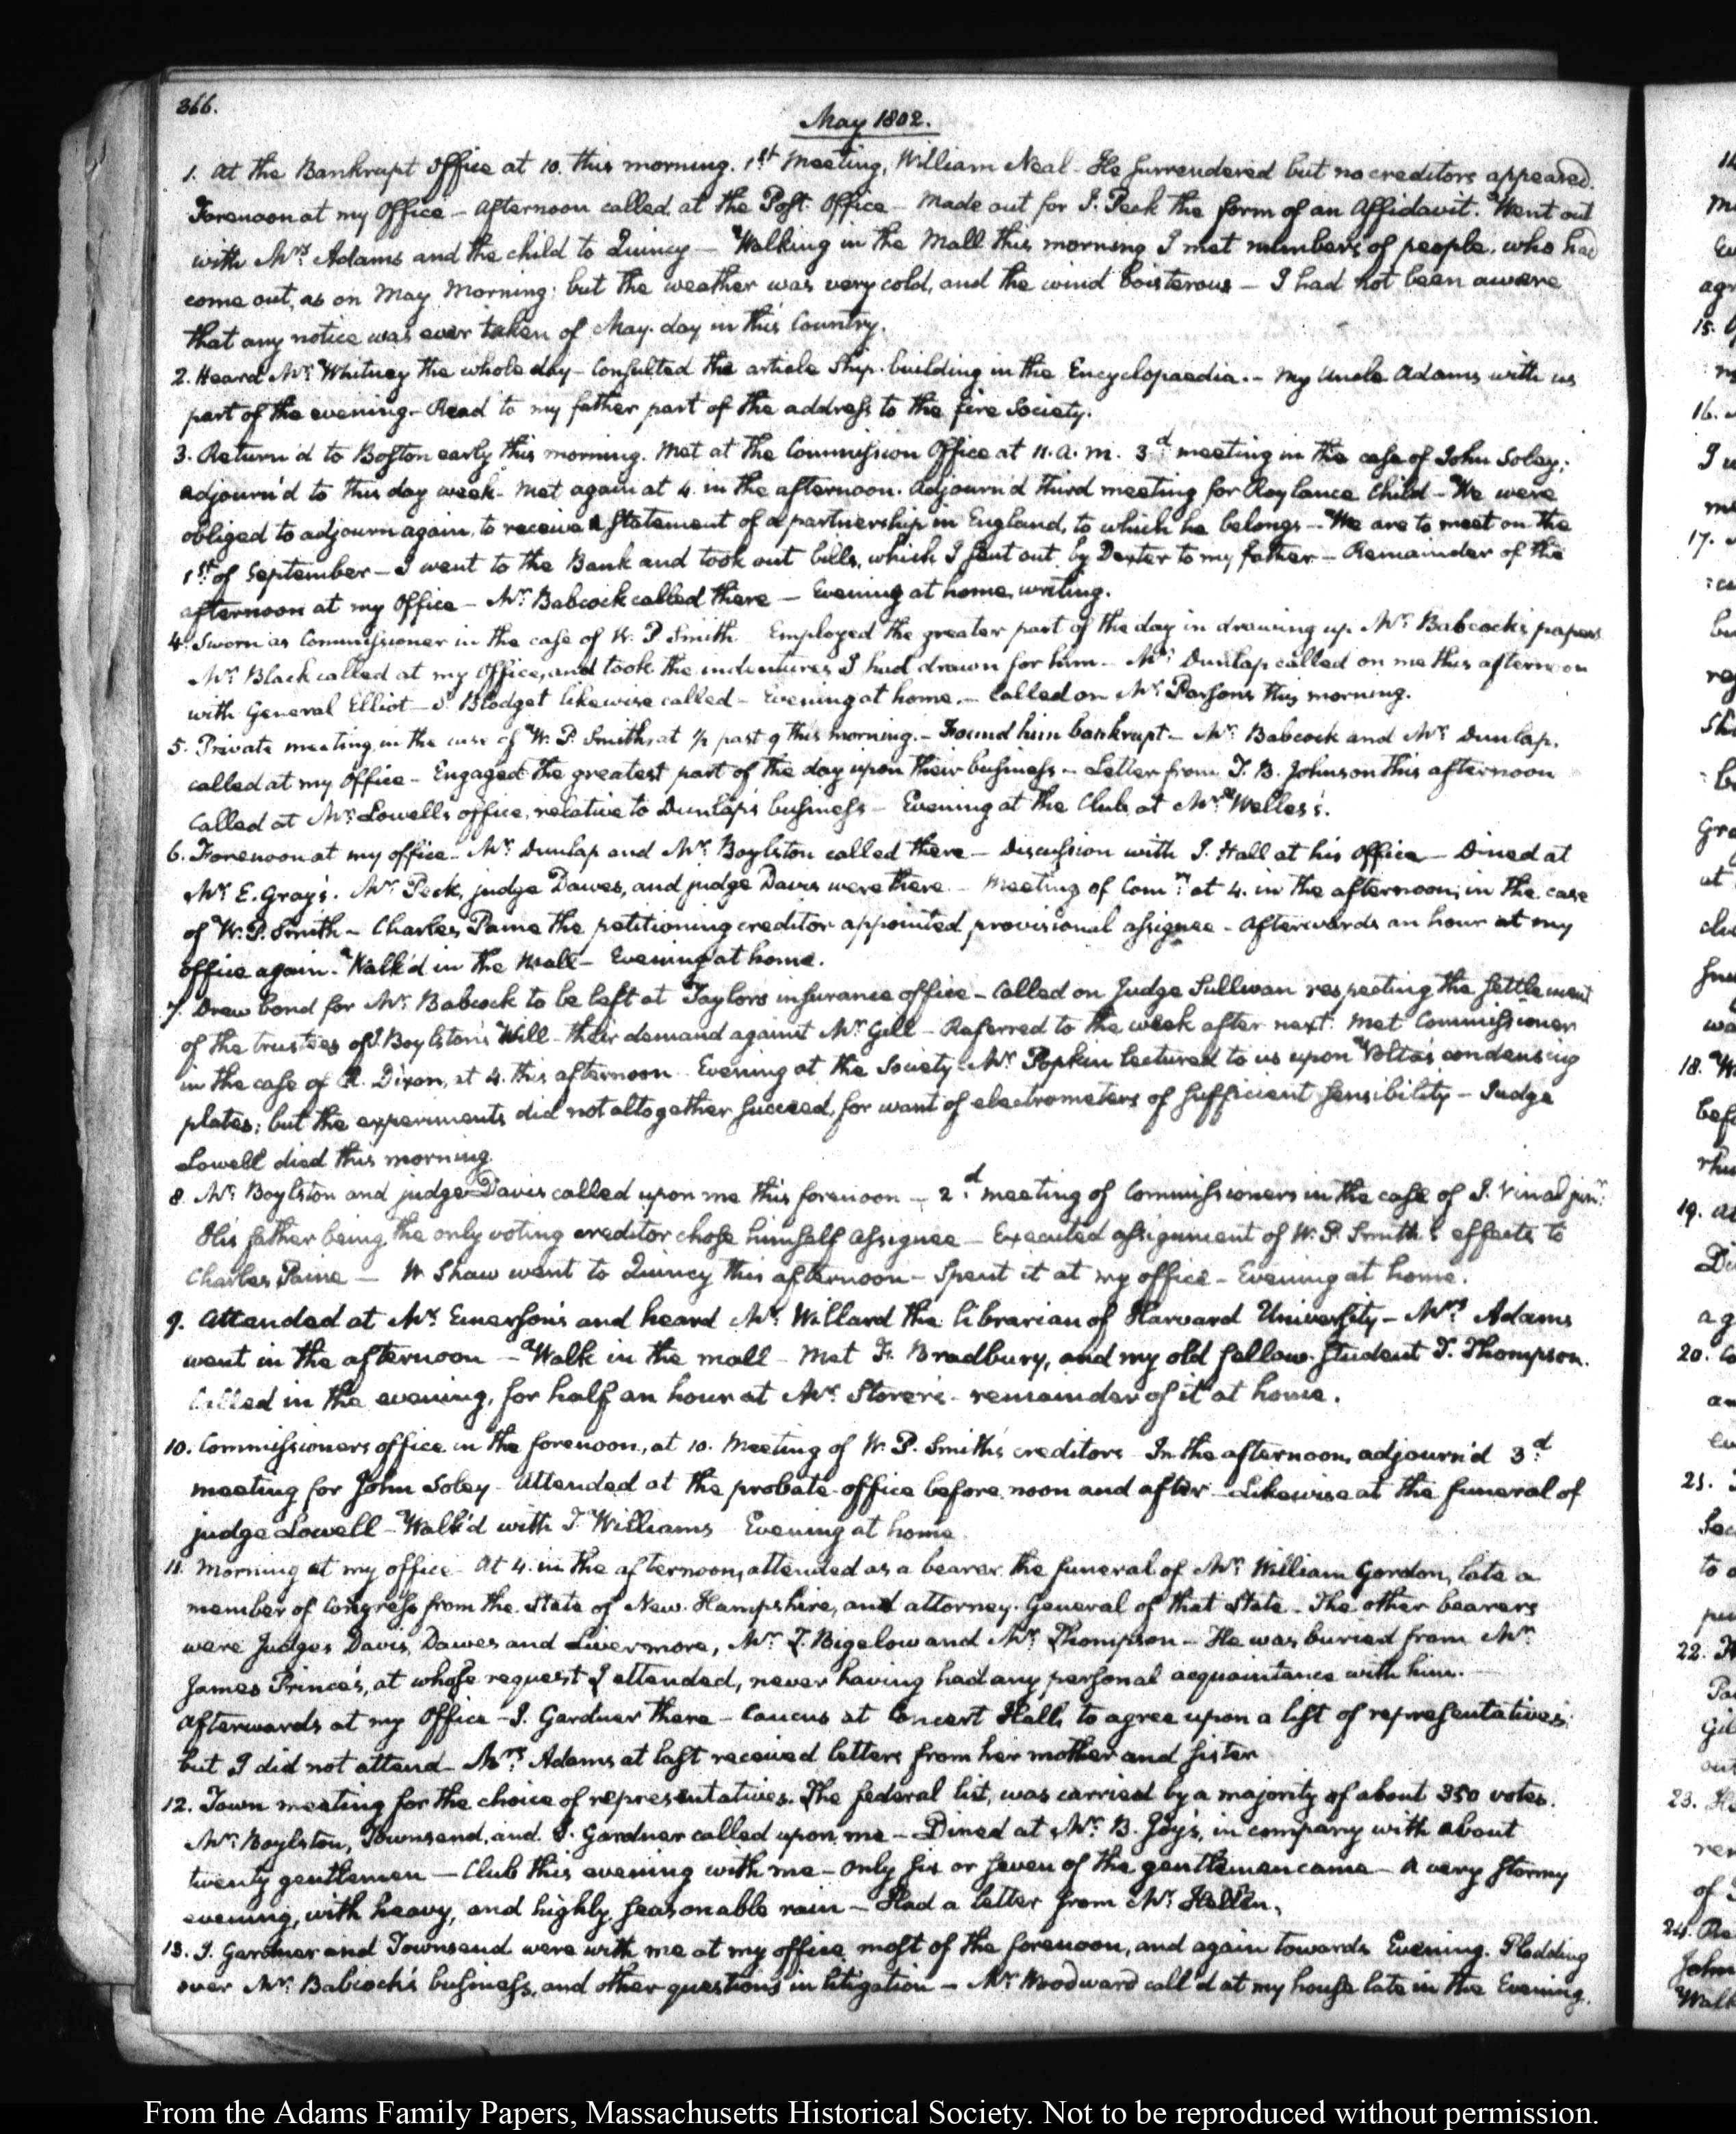 366.
May 1802.
1. At the Bankrupt Office at 10. this morning. 1st Meeting, William Neal - He surrendered but no creditors appeared.
Forenoon at my Office - Afternoon called at the Post-Office - Made out for J. Peck the form of an Affidavit. Went out
with Mrs Adams and the child to Quincy - Walking in the Mall this morning I met numbers of people, who had
come out, as on May Morning: but the weather was very cold, and the wind boisterous - I had not been aware
that any notice was ever taken of May-day in this Country.
2. Heard Mr Whitney the whole day - Consulted the article Ship-building in the Encyclopaedia. - My Uncle Adams with us
part of the evening - Read to my father part of the address to the fire Society.
3. Return'd to Boston early this morning. Met at the Commission Office at 11. a.m. 3d meeting in the case of John Soley;
adjourn'd to this day week - Met again at 4. in the afternoon. Adjourn'd third meeting for Roylance Child - We were
obliged to adjourn again, to receive a statement of a partnership in England, to which he belongs - We are to meet on the
1st of September - I went to the Bank and took out bills, which I sent out by Dexter to my father - Remainder of the
afternoon at my Office - Mr Babcock called there - Evening at home, writing.
4. Sworn as Commissioner in the case of W. P. Smith. Employed the greater part of the day in drawing up Mr Babcock's papers
Mr Black called at my Office, and took the indentures I had drawn for him - Mr Dunlap called on me this afternoon
with General Elliot - S. Blodget likewise called - Evening at home. - Called on Mr Parsons this morning.
5. Private meeting in the case of W. P. Smith, at 1/2 past 9 this morning. - Found him bankrupt - Mr Babcock and Mr Dunlap,
called at my Office - Engaged the greatest part of the day upon their business - Letter from T. B. Johnson this afternoon
Called at Mr Lowell's office, relative to Dunlap's business - Evening at the Club, at Mr Welles's.
6. Forenoon at my office - Mr Dunlap and Mr Boylston called there - Discussion with J. Hall at his Office - Dined at
Mr E. Gray's. Mr Peck, judge Dawes, and judge Davis were there - Meeting of Comrs at 4. in the afternoon, in the case
of W. P. Smith - Charles Paine the petitioning creditor appointed provisional assignee - Afterwards an hour at my
office again. Walk'd in the Mall - Evening at home.
7. Drew bond for Mr Babcock to be left at Taylor's insurance office - Called on Judge Sullivan respecting the settlement
of the trustees of J. Boylston's Will - their demand against Mr Gill - Referred to the week after next. Met Commissioner
in the case of R. Dixon, at 4. this afternoon. Evening at the Society. Mr Popkin lectured to us upon Volta's condensing
plates; but the experiments did not altogether succeed, for want of electrometers of sufficient sensibility - Judge
Lowell died this morning.
8. Mr Boylston and judge Davis called upon me this forenoon - 2d meeting of Commissioners in the case of J. Vinal junr.
His father being the only voting creditor chose himself Assignee - Executed assignment of W. P. Smith's effects to
Charles Paine - W Shaw went to Quincy this afternoon - Spent it at my office - Evening at home.
9. Attended at Mr Emerson's and heard Mr Willard the librarian of Harvard University - Mrs Adams
went in the afternoon - Walk in the mall - Met F. Bradbury, and my old fellow-student T. Thompson.
Called in the evening, for half an hour at Mr Storer's - remainder of it at home.
10. Commissioners office in the forenoon, at 10. Meeting of W. P. Smith's creditors - In the afternoon, adjourn'd 3d
meeting for John Soley - Attended at the probate-office before noon and after - Likewise at the funeral of
judge Lowell - Walk'd with T. Williams - Evening at home.
11. Morning at my office - At 4. in the afternoon, attended as a bearer the funeral of Mr William Gordon, late a
member of Congress from the State of New-Hampshire, and attorney-General of that State - The other bearers
were Judges Davis, Dawes and Livermore, Mr T. Bigelow and Mr Thompson - He was buried from Mr
James Prince's, at whose request I attended, never having had any personal acquaintance with him.
Afterwards at my Office - J. Gardner there - Caucus at Concert Hall, to agree upon a list of representatives;
but I did not attend - Mrs Adams at last received letters from her mother and sister
12. Town meeting for the choice of representatives. The federal list, was carried by a majority of about 350 votes.
Mr Boylston, Townsend, and J. Gardner called upon me - Dined at Mr B. Joy's, in company with about
twenty gentlemen - Club this evening with me - only six or seven of the gentlemen came - A very stormy
evening, with heavy, and highly seasonable rain - Had a letter from Mr Hellen.
13. J. Gardner and Townsend were with me at my office most of the forenoon, and again towards Evening. Plodding
over Mr Babcock's business, and other questions in litigation - Mr Woodward call'd at my house late in the Evening.
From the Adams Family Papers, Massachusetts Historical Society. Not to be reproduced without permission.